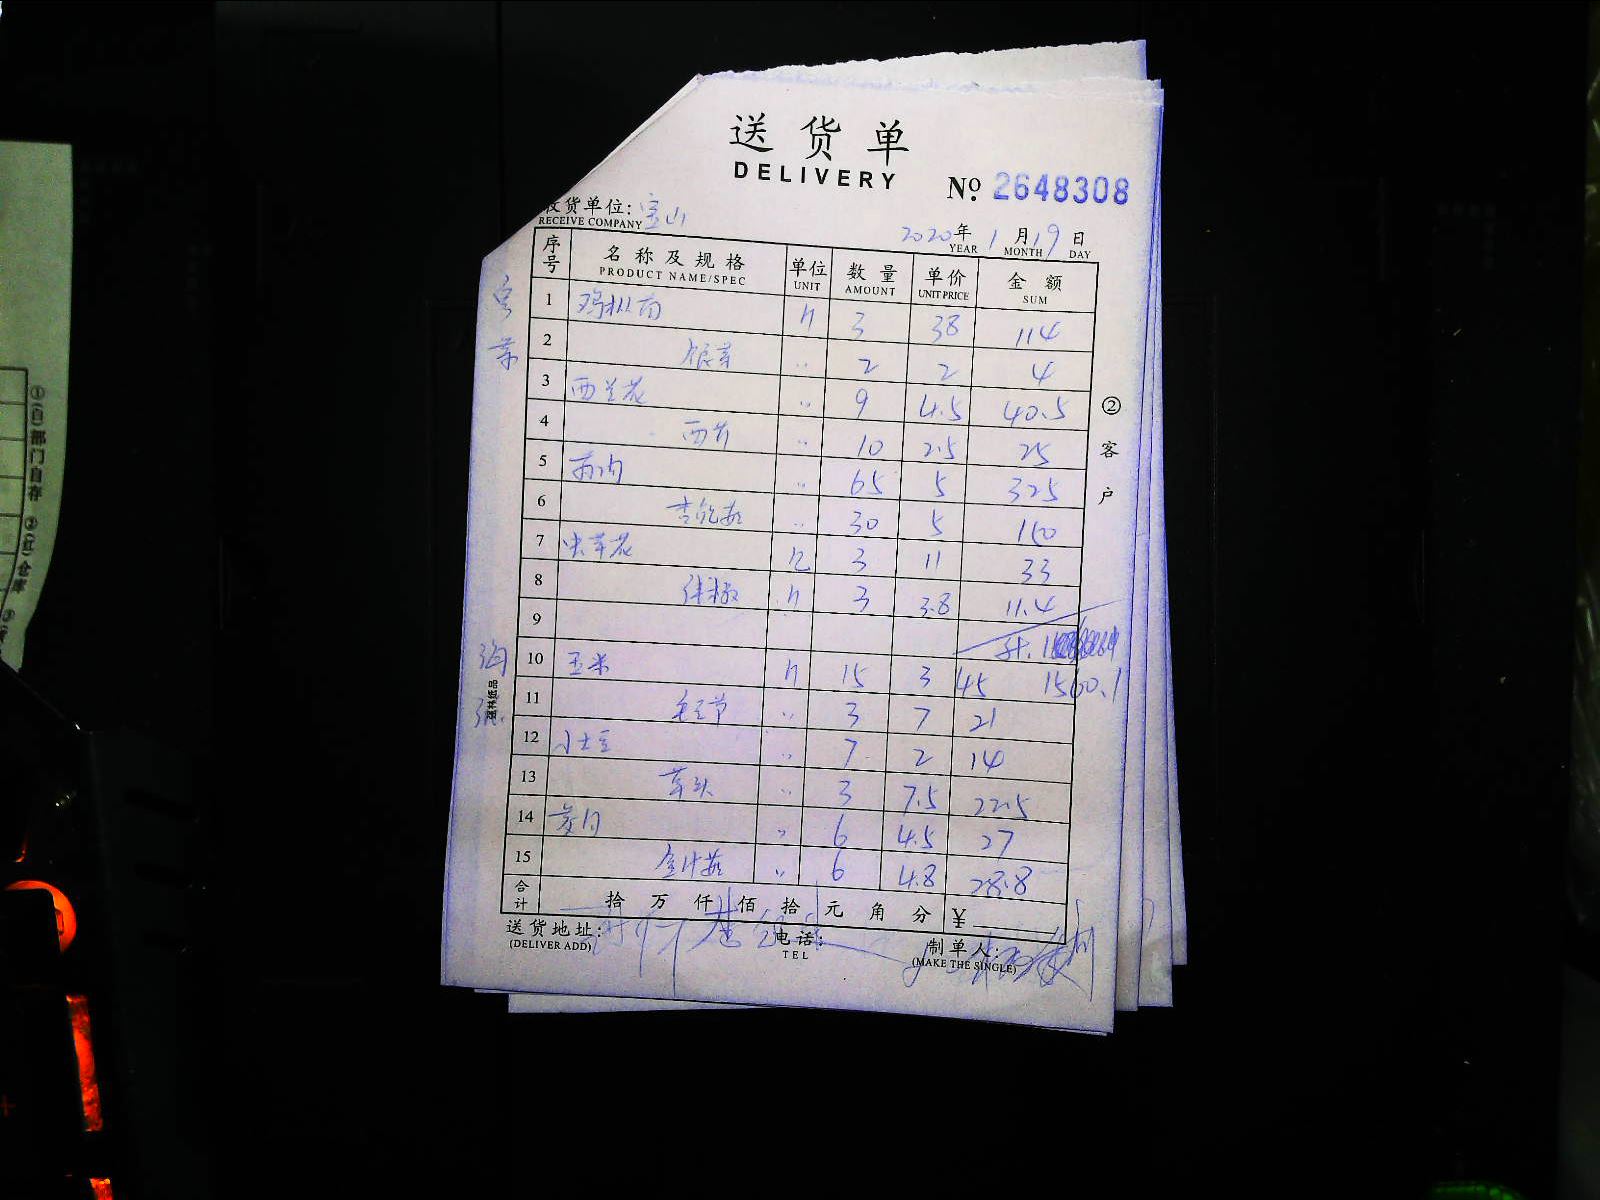 送货单
DELIVERY
№ 2648308
收货单位: 宝山
RECEIVE COMPANY
2020年 1月19日
YEAR MONTH DAY
序号 名称及规格 单位 数量 单价 金额
PRODUCT NAME/SPEC UNIT AMOUNT UNIT PRICE SUM
1 鸡枞菌 斤 3 38 114
2 银芽 〃 2 2 4
3 西兰花 〃 9 4.5 40.5
4 西芹 〃 10 2.5 25
5 〃 65 5 325
6 杏鲍菇 〃 30 5 150
7 3 11 33
8 斤 3 3.8 11.4
9
10 玉米 斤 15 3 45 1560.1
11 毛豆节 〃 3 7 21
12 小土豆 〃 7 2 14
13 草头 〃 3 7.5 22.5
14 〃 6 4.5 27
15 金针菇 〃 6 4.8 28.8
合计 拾 万 仟 佰 拾 元 角 分 ¥
送货地址: 电话: 制单人:
(DELIVER ADD) TEL (MAKE THE SINGLE)
②客户
①(白)部门自存 ②(红)仓库